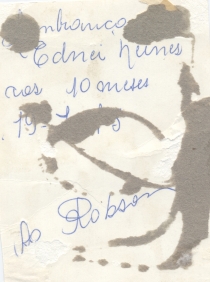 Lembrança
Ednei Nunes
aos 10 meses
19-
Ao Robson